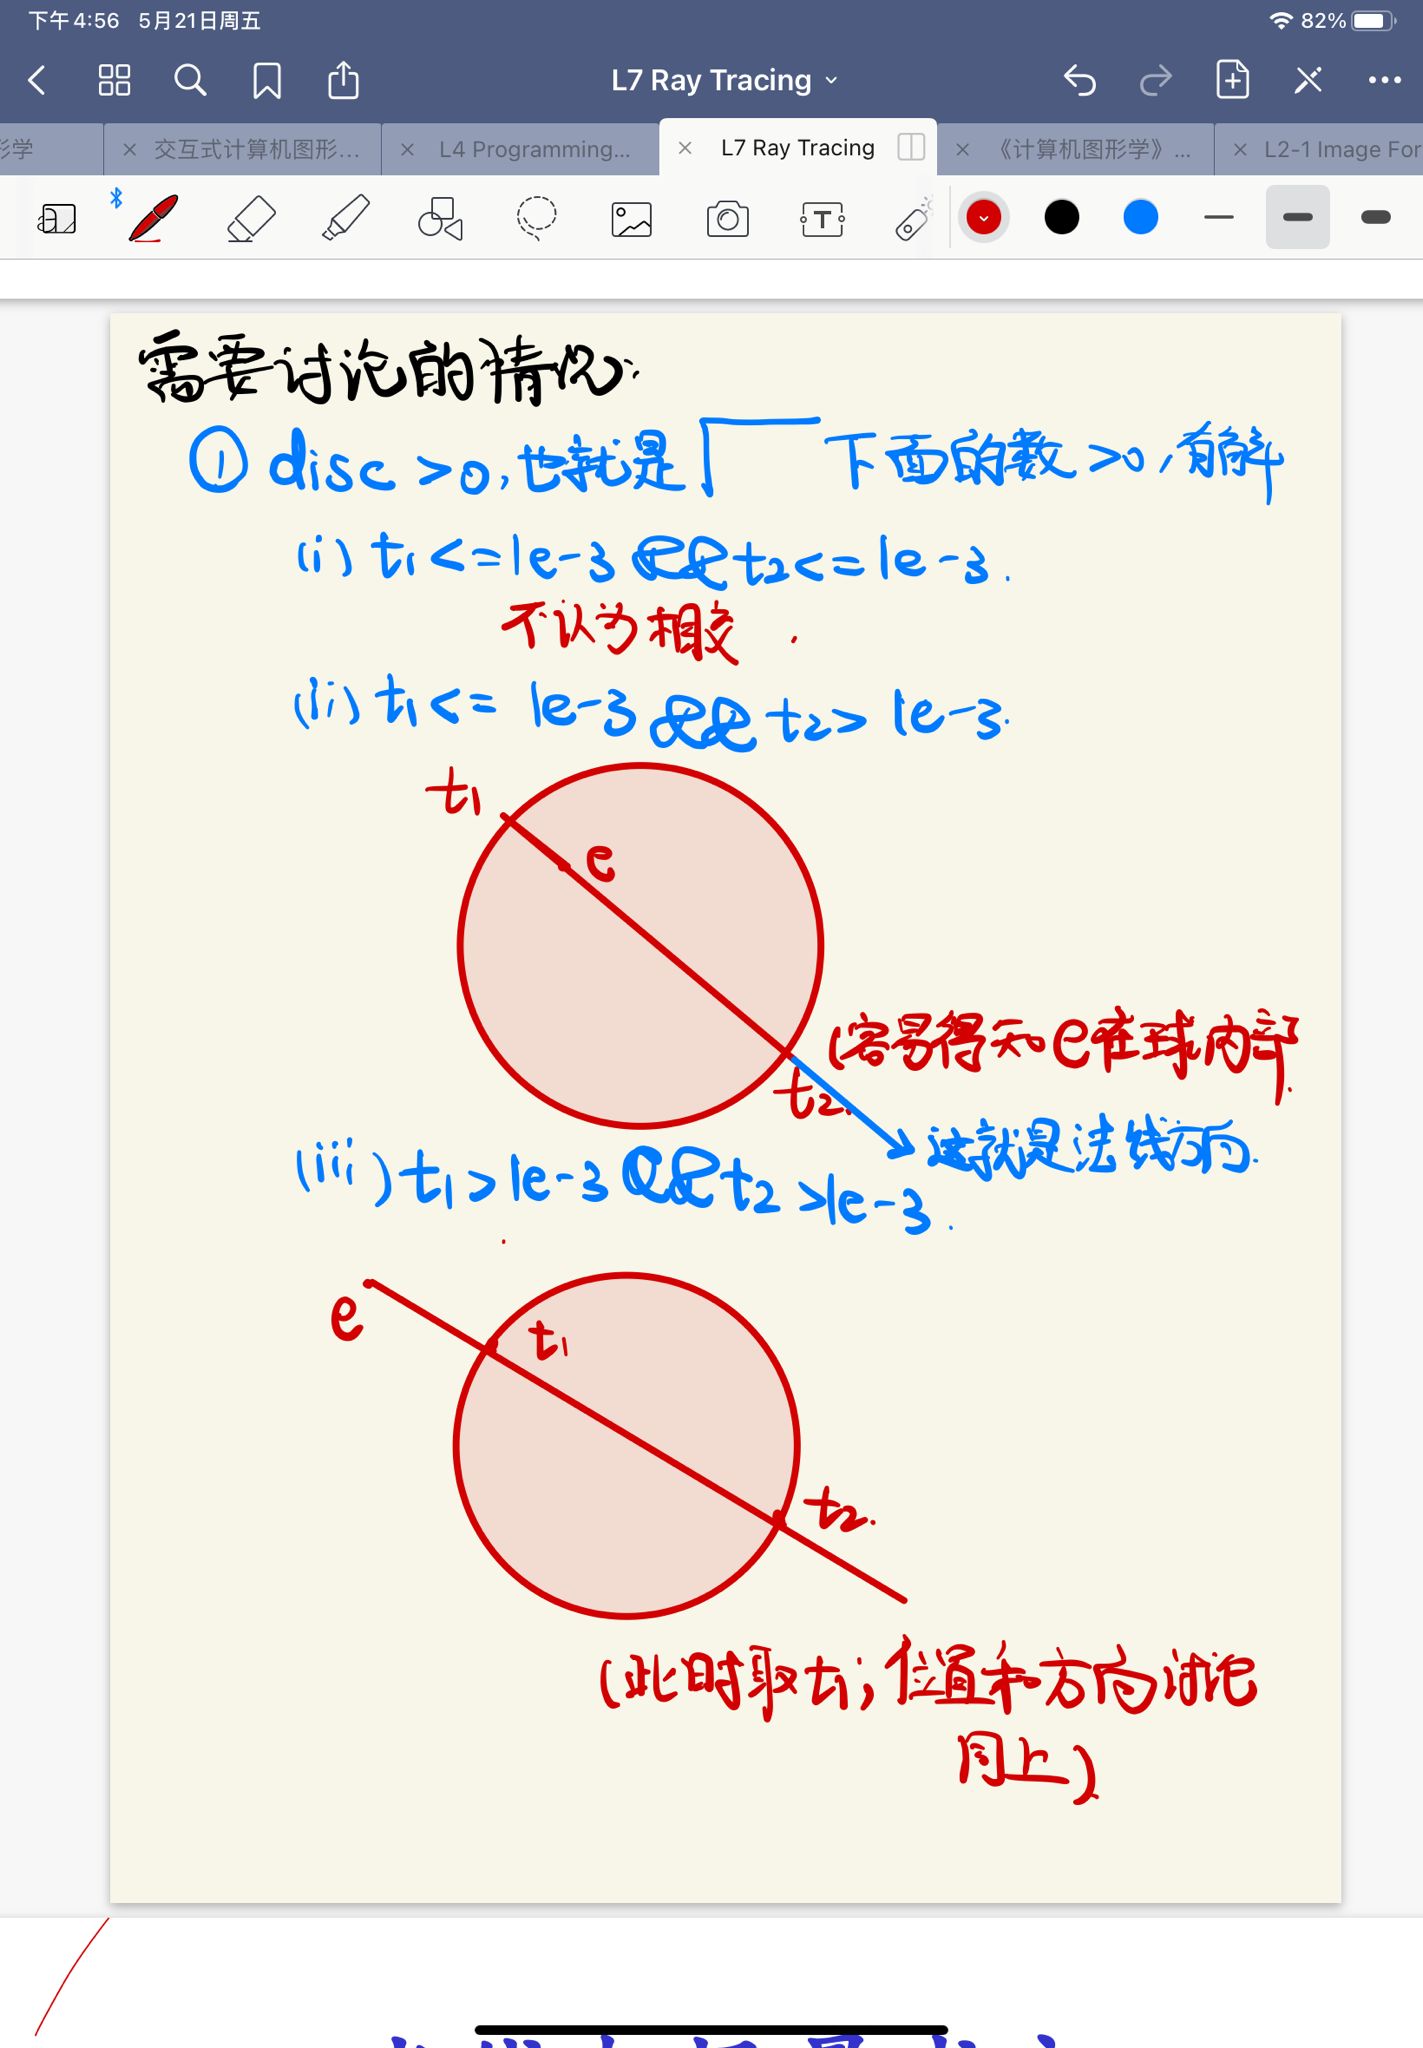 下午4:56 5月21日周五
82%
L7 Ray Tracing
形学
交互式计算机图形...
L4 Programming...
L7 Ray Tracing
《计算机图形学》...
L2-1 Image For
a
T
需要讨论的情况:
① disc >0, 也就是√ 下面的数 >0, 有解
(i) t₁ <= 1e-3 && t₂ <= 1e-3.
不认为相交.
(ii) t₁ <= 1e-3 && t₂ > 1e-3.
t₁
e
(容易得知 e在球内部.
t₂.
这就是法线方向.
(iii) t₁ > 1e-3 && t₂ > 1e-3.
e
t₁
t₂.
(此时取t₁; 位置和方向讨论
同上)